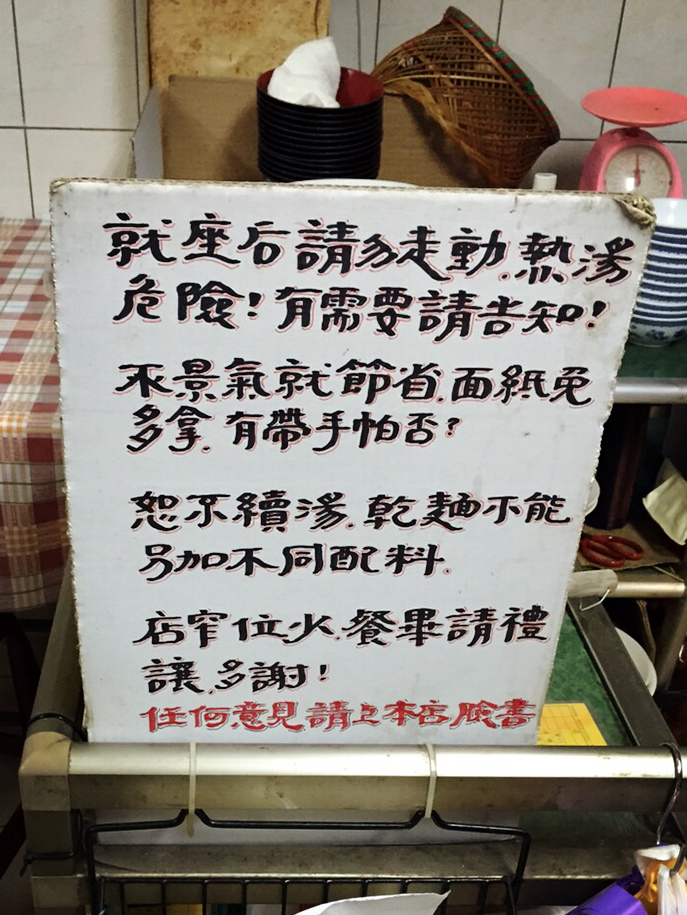 就座后請勿走動.熱湯
危險!有需要請告知!
不景氣就節省.面紙免
多拿.有帶手帕否?
恕不續湯.乾麵不能
另加不同配料.
店窄位少.餐畢請禮
讓.多謝!
任何意見請上本店臉書